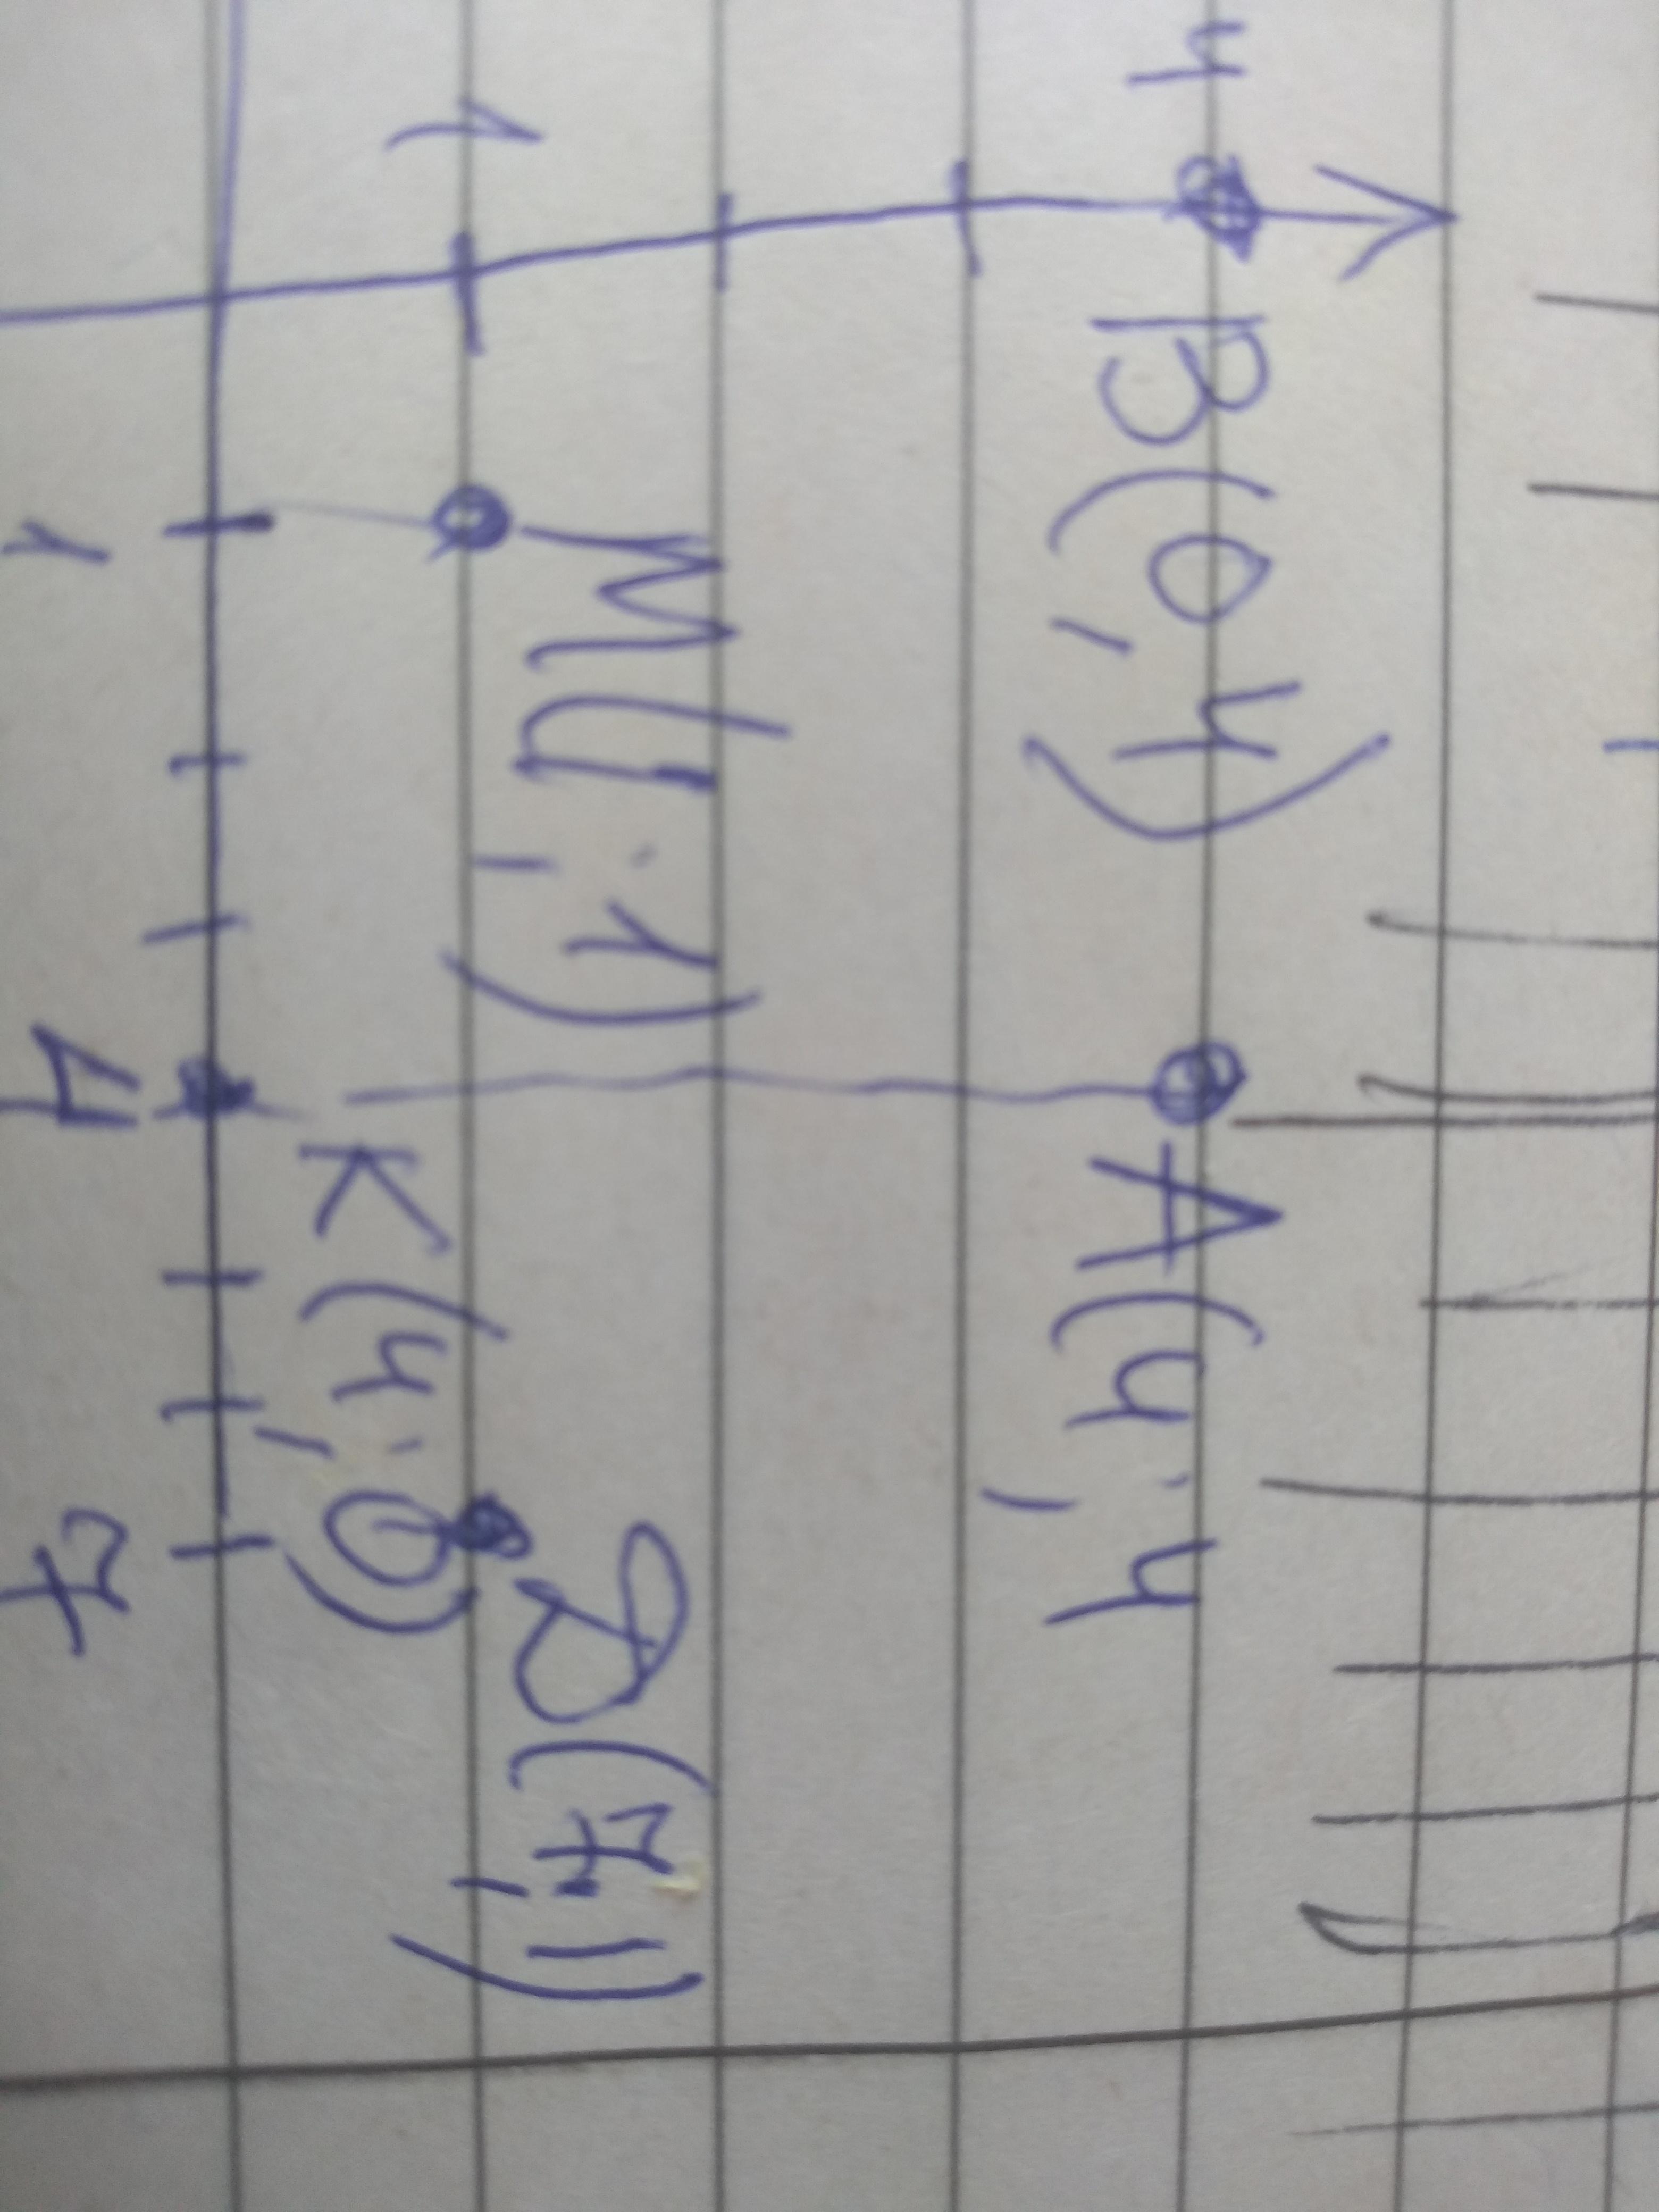 4
B(0,4)
A(4;4
1
M(1;1)
D(7;1)
K(4;0)
1
4
7